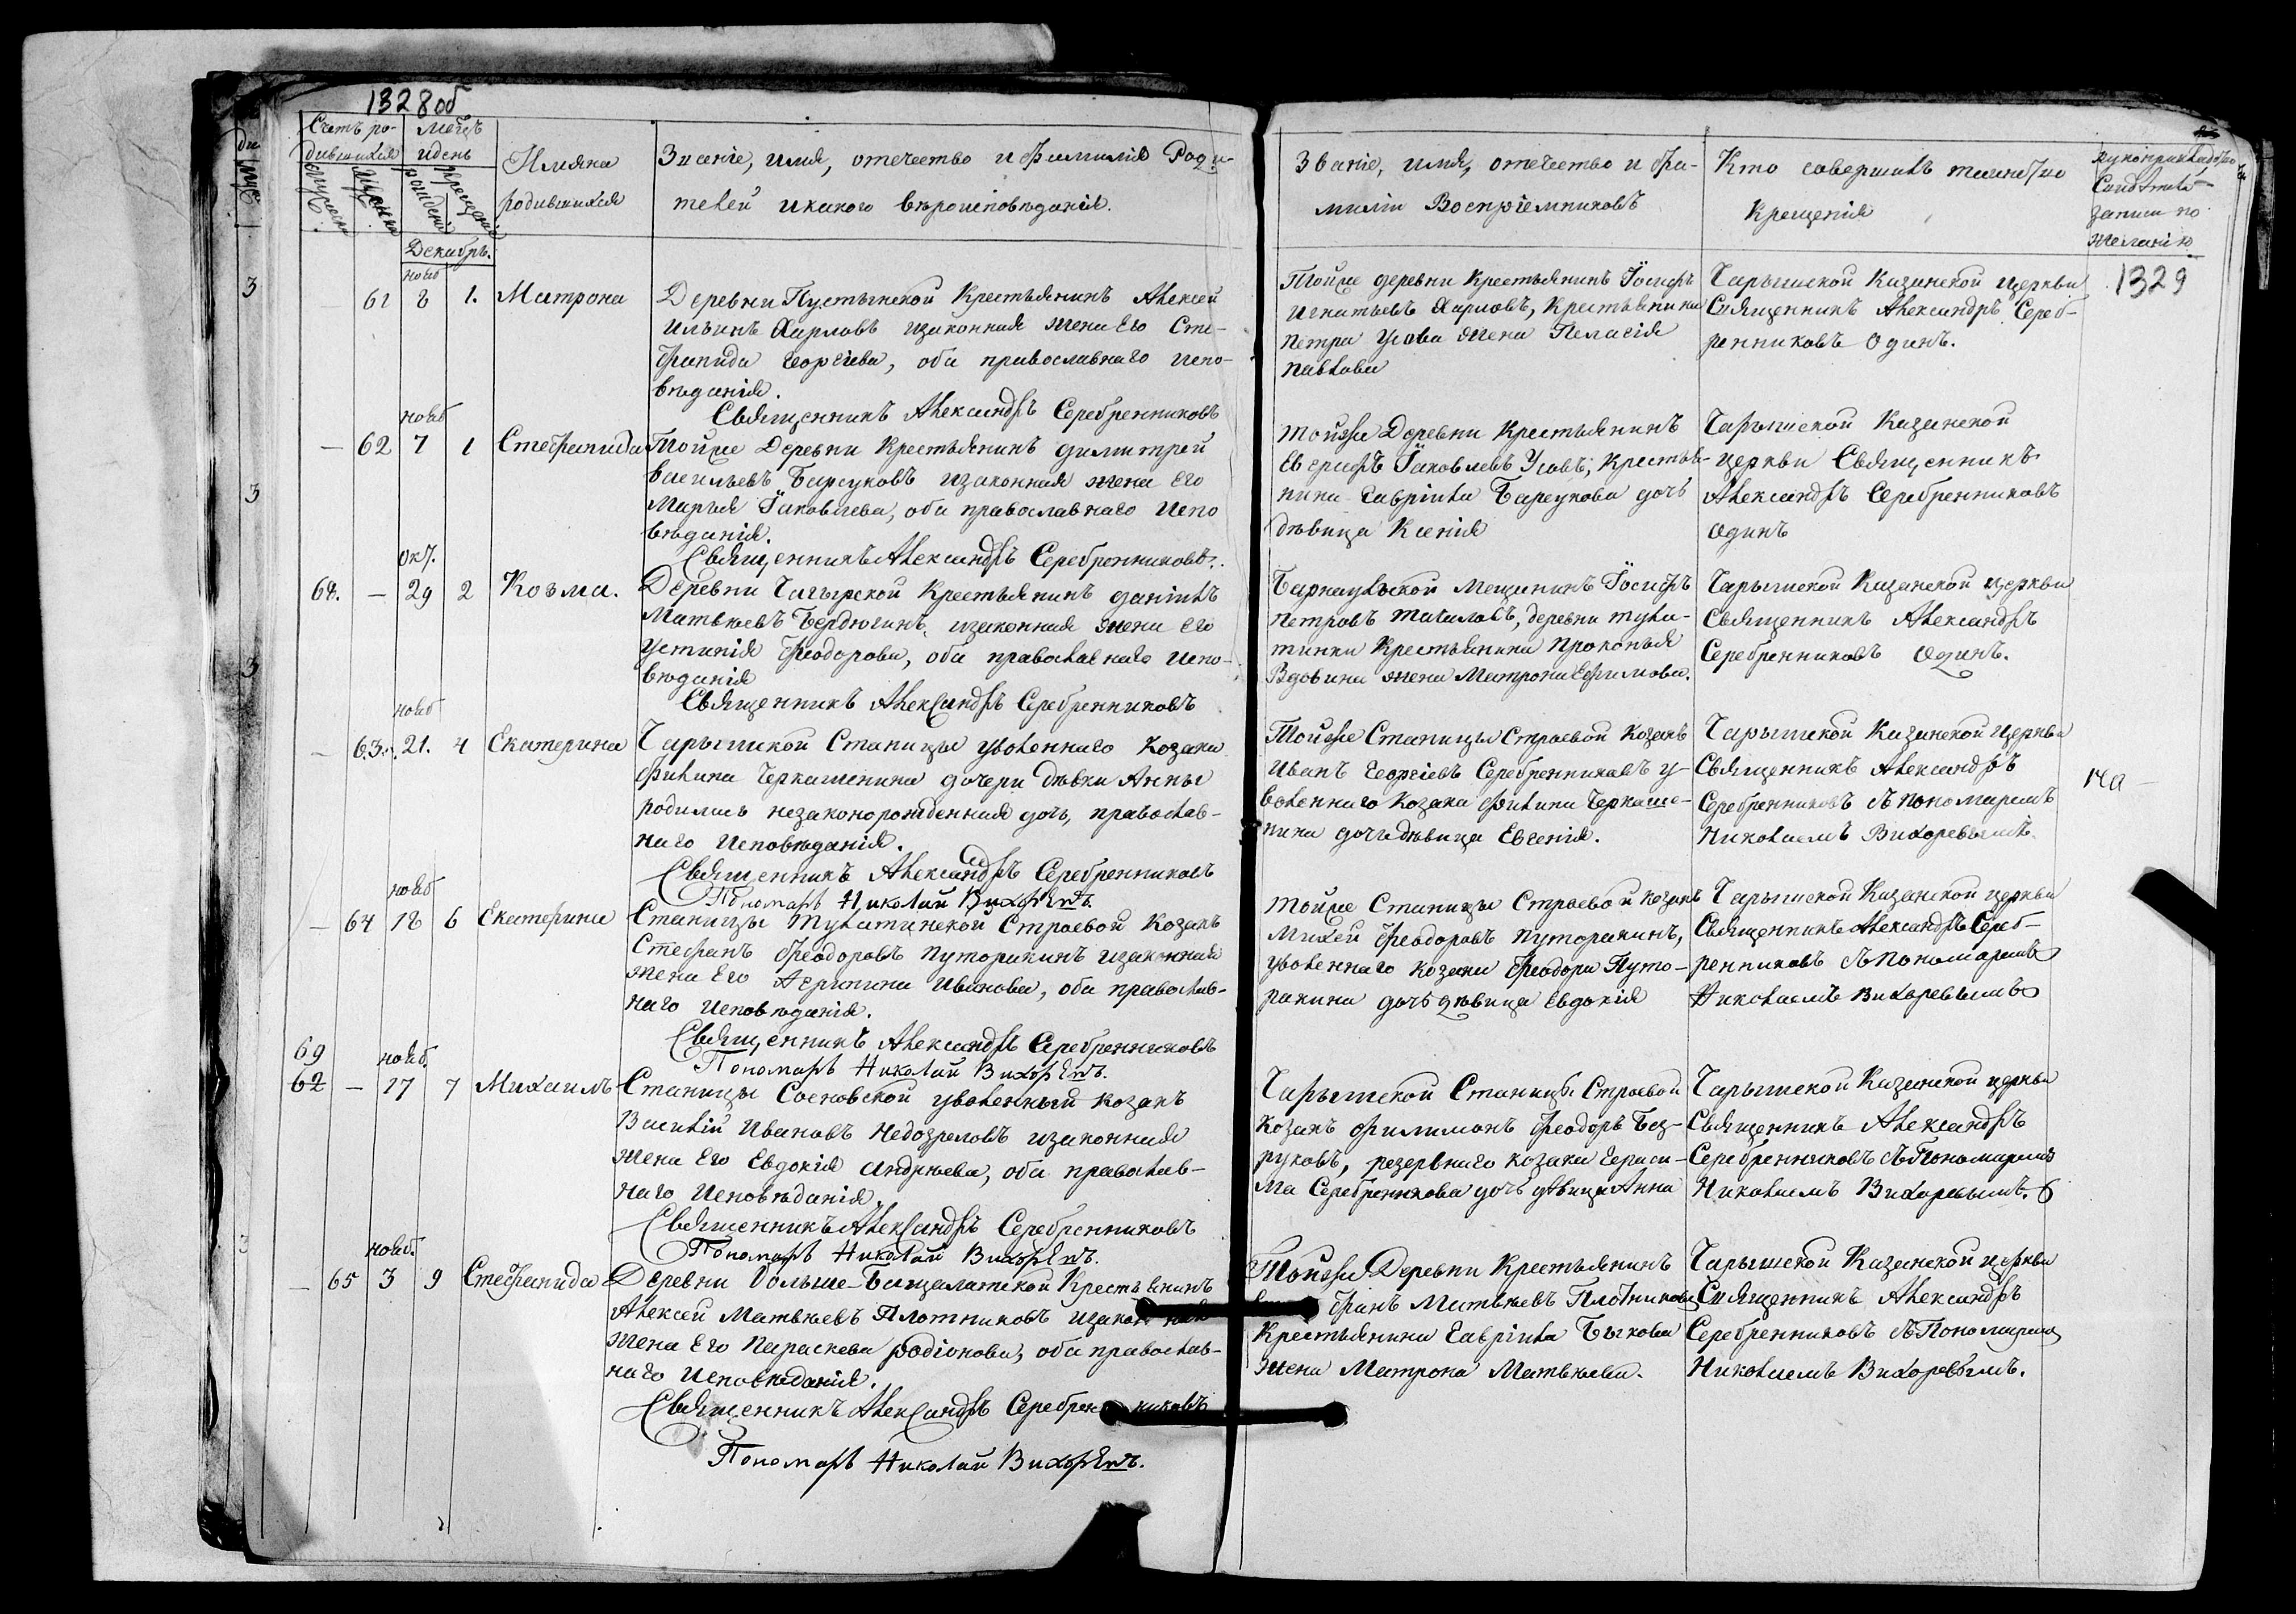 1328об
Счетъ ро-
дившихся
Мѣсцъ
и день
рожденія
крещенія
Имяна
родившихся
Званіе, имя, отечество и фамилія Роди-
телей и какого вѣроисповѣданія.
Декабрь.
нояб
61 8 1. Матрона
Деревни Пустынской Крестьянинъ Алексей
Ильинъ Харловъ изаконная жена Его Сте-
фанида Георгіева, оба православнаго испо-
вѣданія.
Священникъ Александръ Серебренниковъ
нояб
— 62 7 1 Стефанида
Тойже Деревни Крестьянинъ Димитрей
Васильевъ Барсуковъ изаконная жена Его
Марья Іаковлева, оба православнаго Испо
вѣданія.
Священникъ Александръ Серебренниковъ.
Окт.
68. — 29 2 Козма.
Деревни Чагырской Крестьянинъ Даніилъ
Матвѣевъ Бердюгинъ, изаконная жена Его
Устинія Феодорова, оба православнаго испо-
вѣданія
Священникъ Александръ Серебренниковъ
нояб
— 63. 21. 4 Екатерина
Чарышской Станицы уволеннаго Козака
Филипа Черкашенина дочери дѣвки Анны
родилась незаконорожденная дочь, православ-
наго Исповѣданія.
Священникъ Александръ Серебренниковъ
Пономарь Николай Вихоревъ.
нояб
— 64 18 6 Екатерина
Станицы Тулатинской Строевой Козакъ
Стефанъ Феодоровъ Путоракинъ изаконная
жена Его Агрипина Иванова, оба православ-
наго Исповѣданія.
Священникъ Александръ Серебренниковъ
Пономарь Николай Вихоревъ.
69
нояб.
62 — 17 7 Михаилъ
Станицы Сосновской уволенный козакъ
Василій Ивановъ Недозреловъ изаконная
жена Его Евдокія Андрѣева, оба православ-
наго Исповѣданія.
Священникъ Александръ Серебренниковъ
Пономарь Николай Вихоревъ.
нояб.
— 65 3 9 Стефанида
Деревни больше-Бащелатской Крестьянинъ
Алексей Матвѣевъ Плотниковъ изаконная
жена Его Параскева родіонова, оба православ-
наго Исповѣданія.
Священникъ Александръ Серебренниковъ
Пономарь Николай Вихоревъ.
Званіе, имя, отечество и фа-
миліи Воспріемниковъ
Кто совершилъ таинство
Крещенія
Рукоприкладство
Свидѣтелей
записи по
желанію
1329
Тойже деревни Крестьянинъ Іосифъ
Игнатьевъ Харловъ, Крестьянина
Петра Усова жена Пелагія
Павлова
Чарышской Казанской церкви
Священникъ Александръ Сереб-
ренниковъ Одинъ.
Тойже Деревни Крестьянинъ
Іаковлевъ Усовъ, Крестья-
нина Гавріила Барсукова дочь
дѣвица Ксенія
Чарышской Казанской
церкви Священникъ
Александръ Серебренниковъ
Одинъ
Барнаульской Мещанинъ Іосифъ
Петровъ Тагиловъ, деревни тула-
тинки Крестьянина Прокопья
Вдовина жена Матрона Ефимова.
Чарышской Казанской церкви
Священникъ Александръ
Серебренниковъ Одинъ.
Тойже Станицы Строевой Козакъ
Иванъ Георгіевъ Серебренниковъ у-
воленнаго Козака Филипа Черкаше-
нина дочь дѣвица Евгенія.
Чарышской Казанской Церкви
Священникъ Александръ
Серебренниковъ съ пономаремъ
Николаемъ Вихоревымъ
Тойже Станицы Строевой козакъ
Михей Феодоровъ Путоракинъ,
уволеннаго козака Феодора Путо-
ракина дочь дѣвица Евдокія
Чарышской Казанской церкви
Священникъ Александръ Сереб-
ренниковъ съ Пономаремъ
Николаемъ Вихоревымъ
Чарышской Станицы Строевой
Козакъ Филимонъ Феодоръ Без-
руковъ, резервнаго козака Гераси-
ма Серебренникова дочь дѣвица Анна
Чарышской Казанской церкви
Священникъ Александръ
Серебренниковъ съ Пономаремъ
Николаемъ Вихоревымъ.
Тойже Деревни Крестьянинъ
Матвѣевъ Плотниковъ
Крестьянина Гавріила Бычкова
жена Матрона Матвѣева.
Чарышской Казанской церкви
Священникъ Александръ
Серебренниковъ съ Пономаремъ
Николаемъ Вихоревымъ.